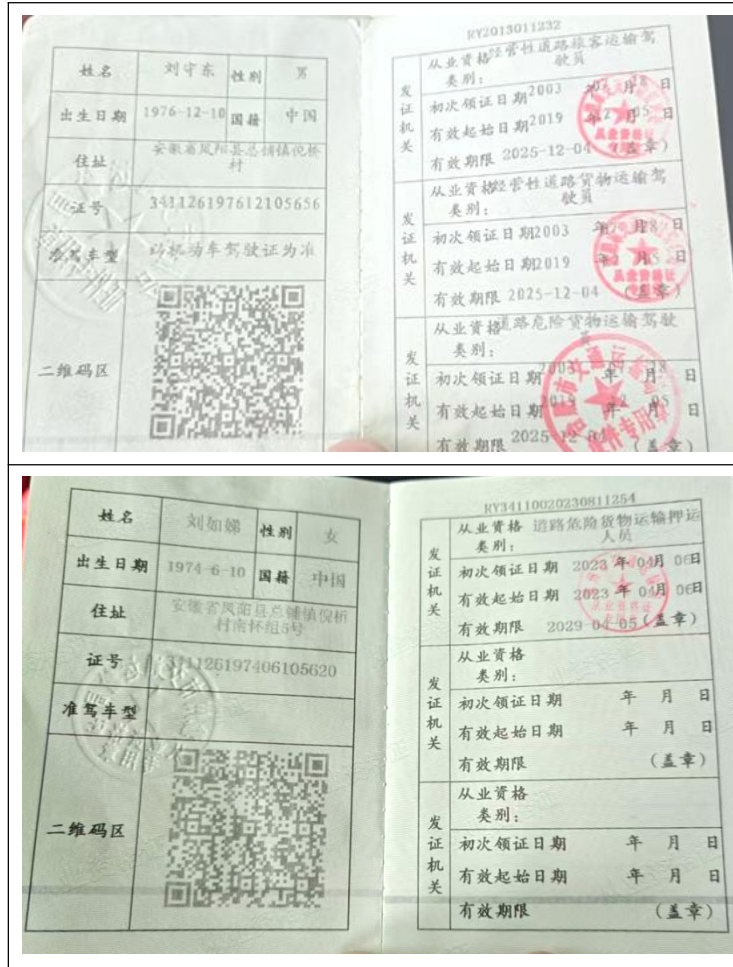 姓名 刘守东 性别 男
出生日期 1976-12-10 国籍 中国
住址 安徽省凤阳县总铺镇倪桥
村
证号 341126197612105656
准驾车型 以机动车驾驶证为准
二维码区
RY2013011232
发证机关
从业资格 经营性道路旅客运输驾
类别: 驶员
初次领证日期 2003 年 07 月 28 日
有效起始日期 2019 年 12 月 05 日
有效期限 2025-12-04 (盖章)
发证机关
从业资格 经营性道路货物运输驾
类别: 驶员
初次领证日期 2003 年 月 28 日
有效起始日期 2019 年 12 月 05 日
有效期限 2025-12-04 (盖章)
从业资格证
发证机关
从业资格 道路危险货物运输驾驶
类别: 员
初次领证日期 2003 年 月 28 日
有效起始日期 2019 年 12 月 05 日
有效期限 2025-12-04 (盖章)
姓名 刘如娣 性别 女
出生日期 1974-6-10 国籍 中国
住址 安徽省凤阳县总铺镇倪桥
村南怀组5号
证号 341126197406105620
准驾车型
二维码区
RY34110020230811254
发证机关
从业资格 道路危险货物运输押运
类别: 人员
初次领证日期 2023 年 04 月 06 日
有效起始日期 2023 年 04 月 06 日
有效期限 2029-04-05 (盖章)
从业资格证
发证机关
从业资格
类别:
初次领证日期 年 月 日
有效起始日期 年 月 日
有效期限 (盖章)
发证机关
从业资格
类别:
初次领证日期 年 月 日
有效起始日期 年 月 日
有效期限 (盖章)